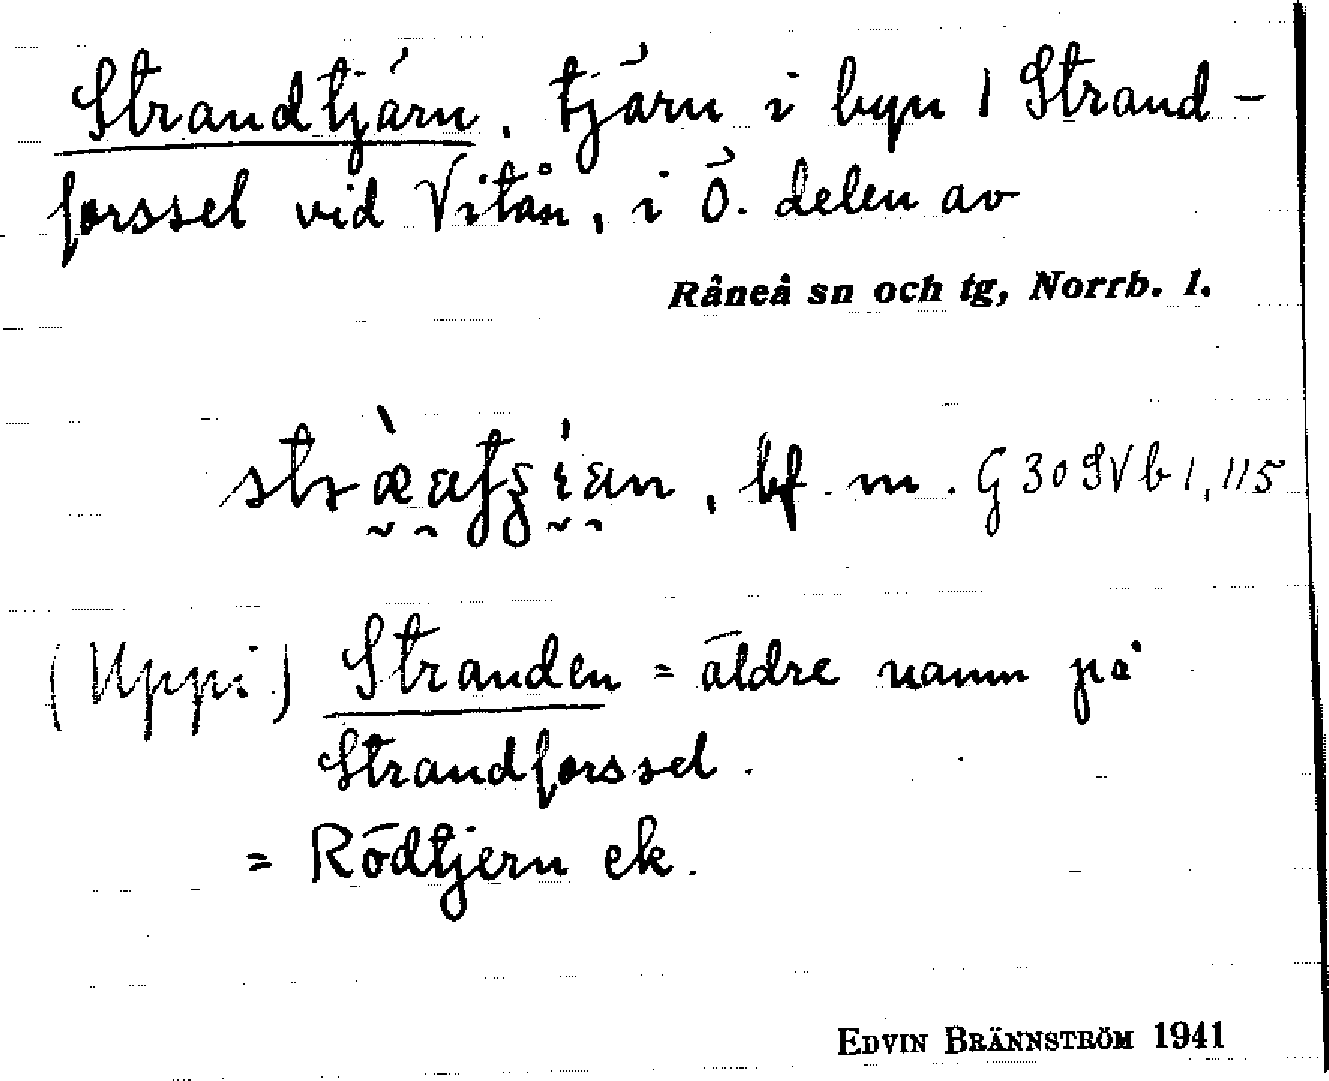 Strandtjärn, tjärn i byn 1 Strand-
forssel vid Vitån, i Ö. delen av
Råneå sn och tg, Norrb. l.
, bf. m. G 30 SV b 1, 115
(Uppi) Stranden = äldre namn på
Strandforssel.
= Rödtjern ek.
EDVIN BRÄNNSTRÖM 1941